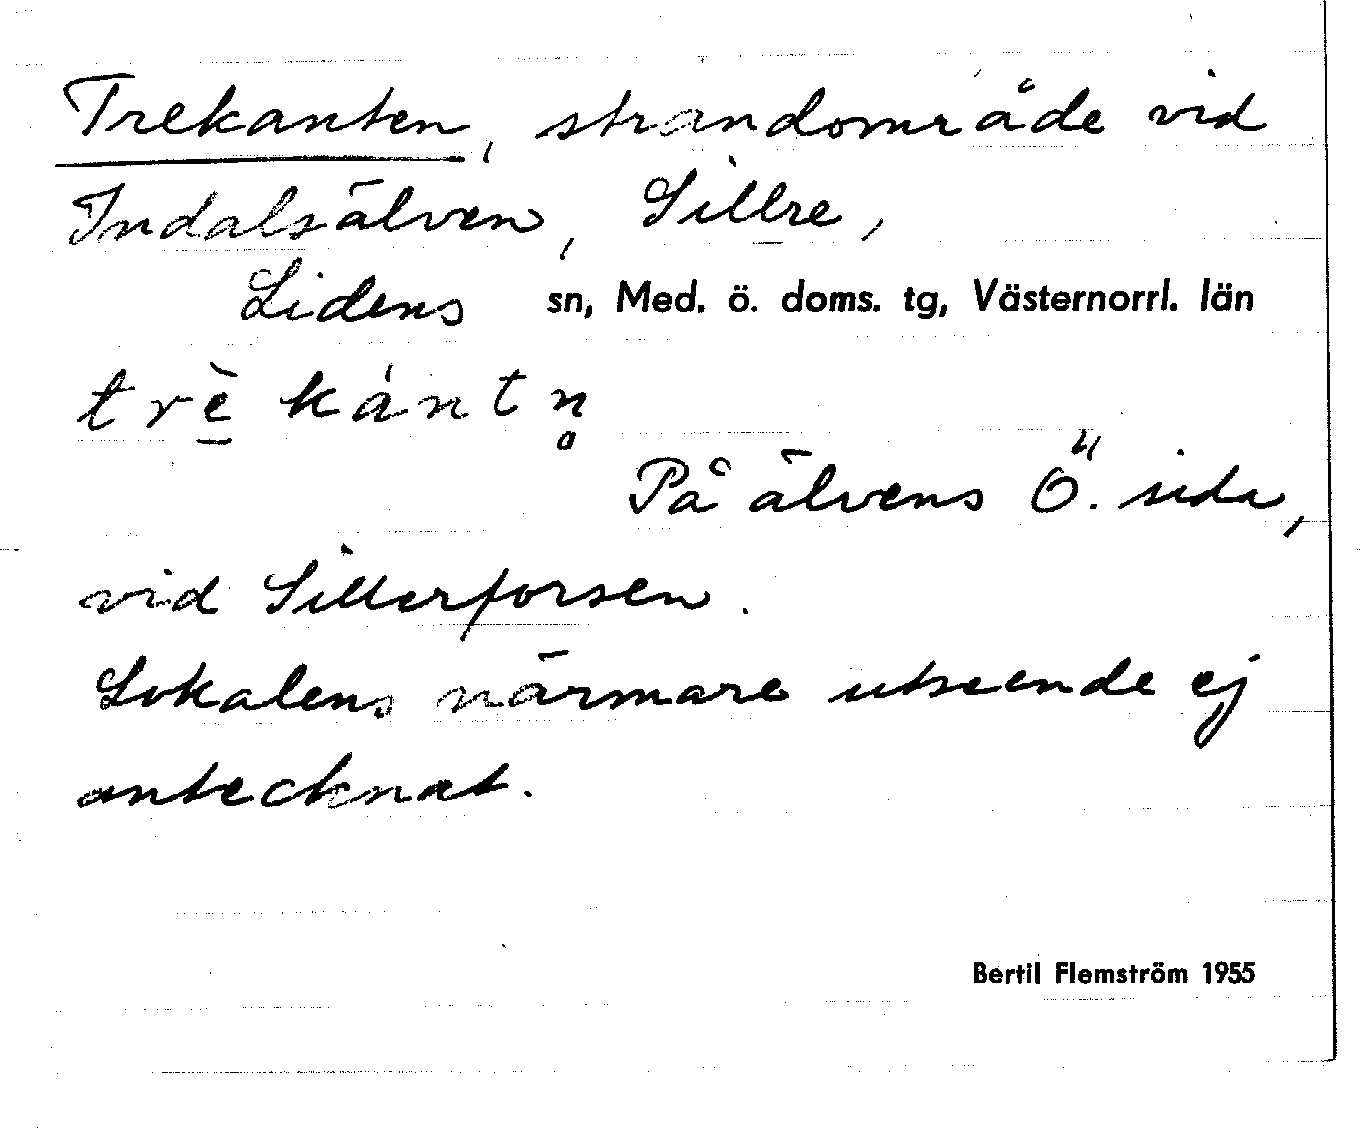 Trekanten, strandområde vid
Indalsälven, Sillre,
Lidens sn, Med. ö. doms. tg, Västernorrl. län
trè̠ kántn̥
På älvens Ö. sida,
vid Sillerforsen.
Lokalens närmare utseende ej
antecknat.
Bertil Flemström 1955